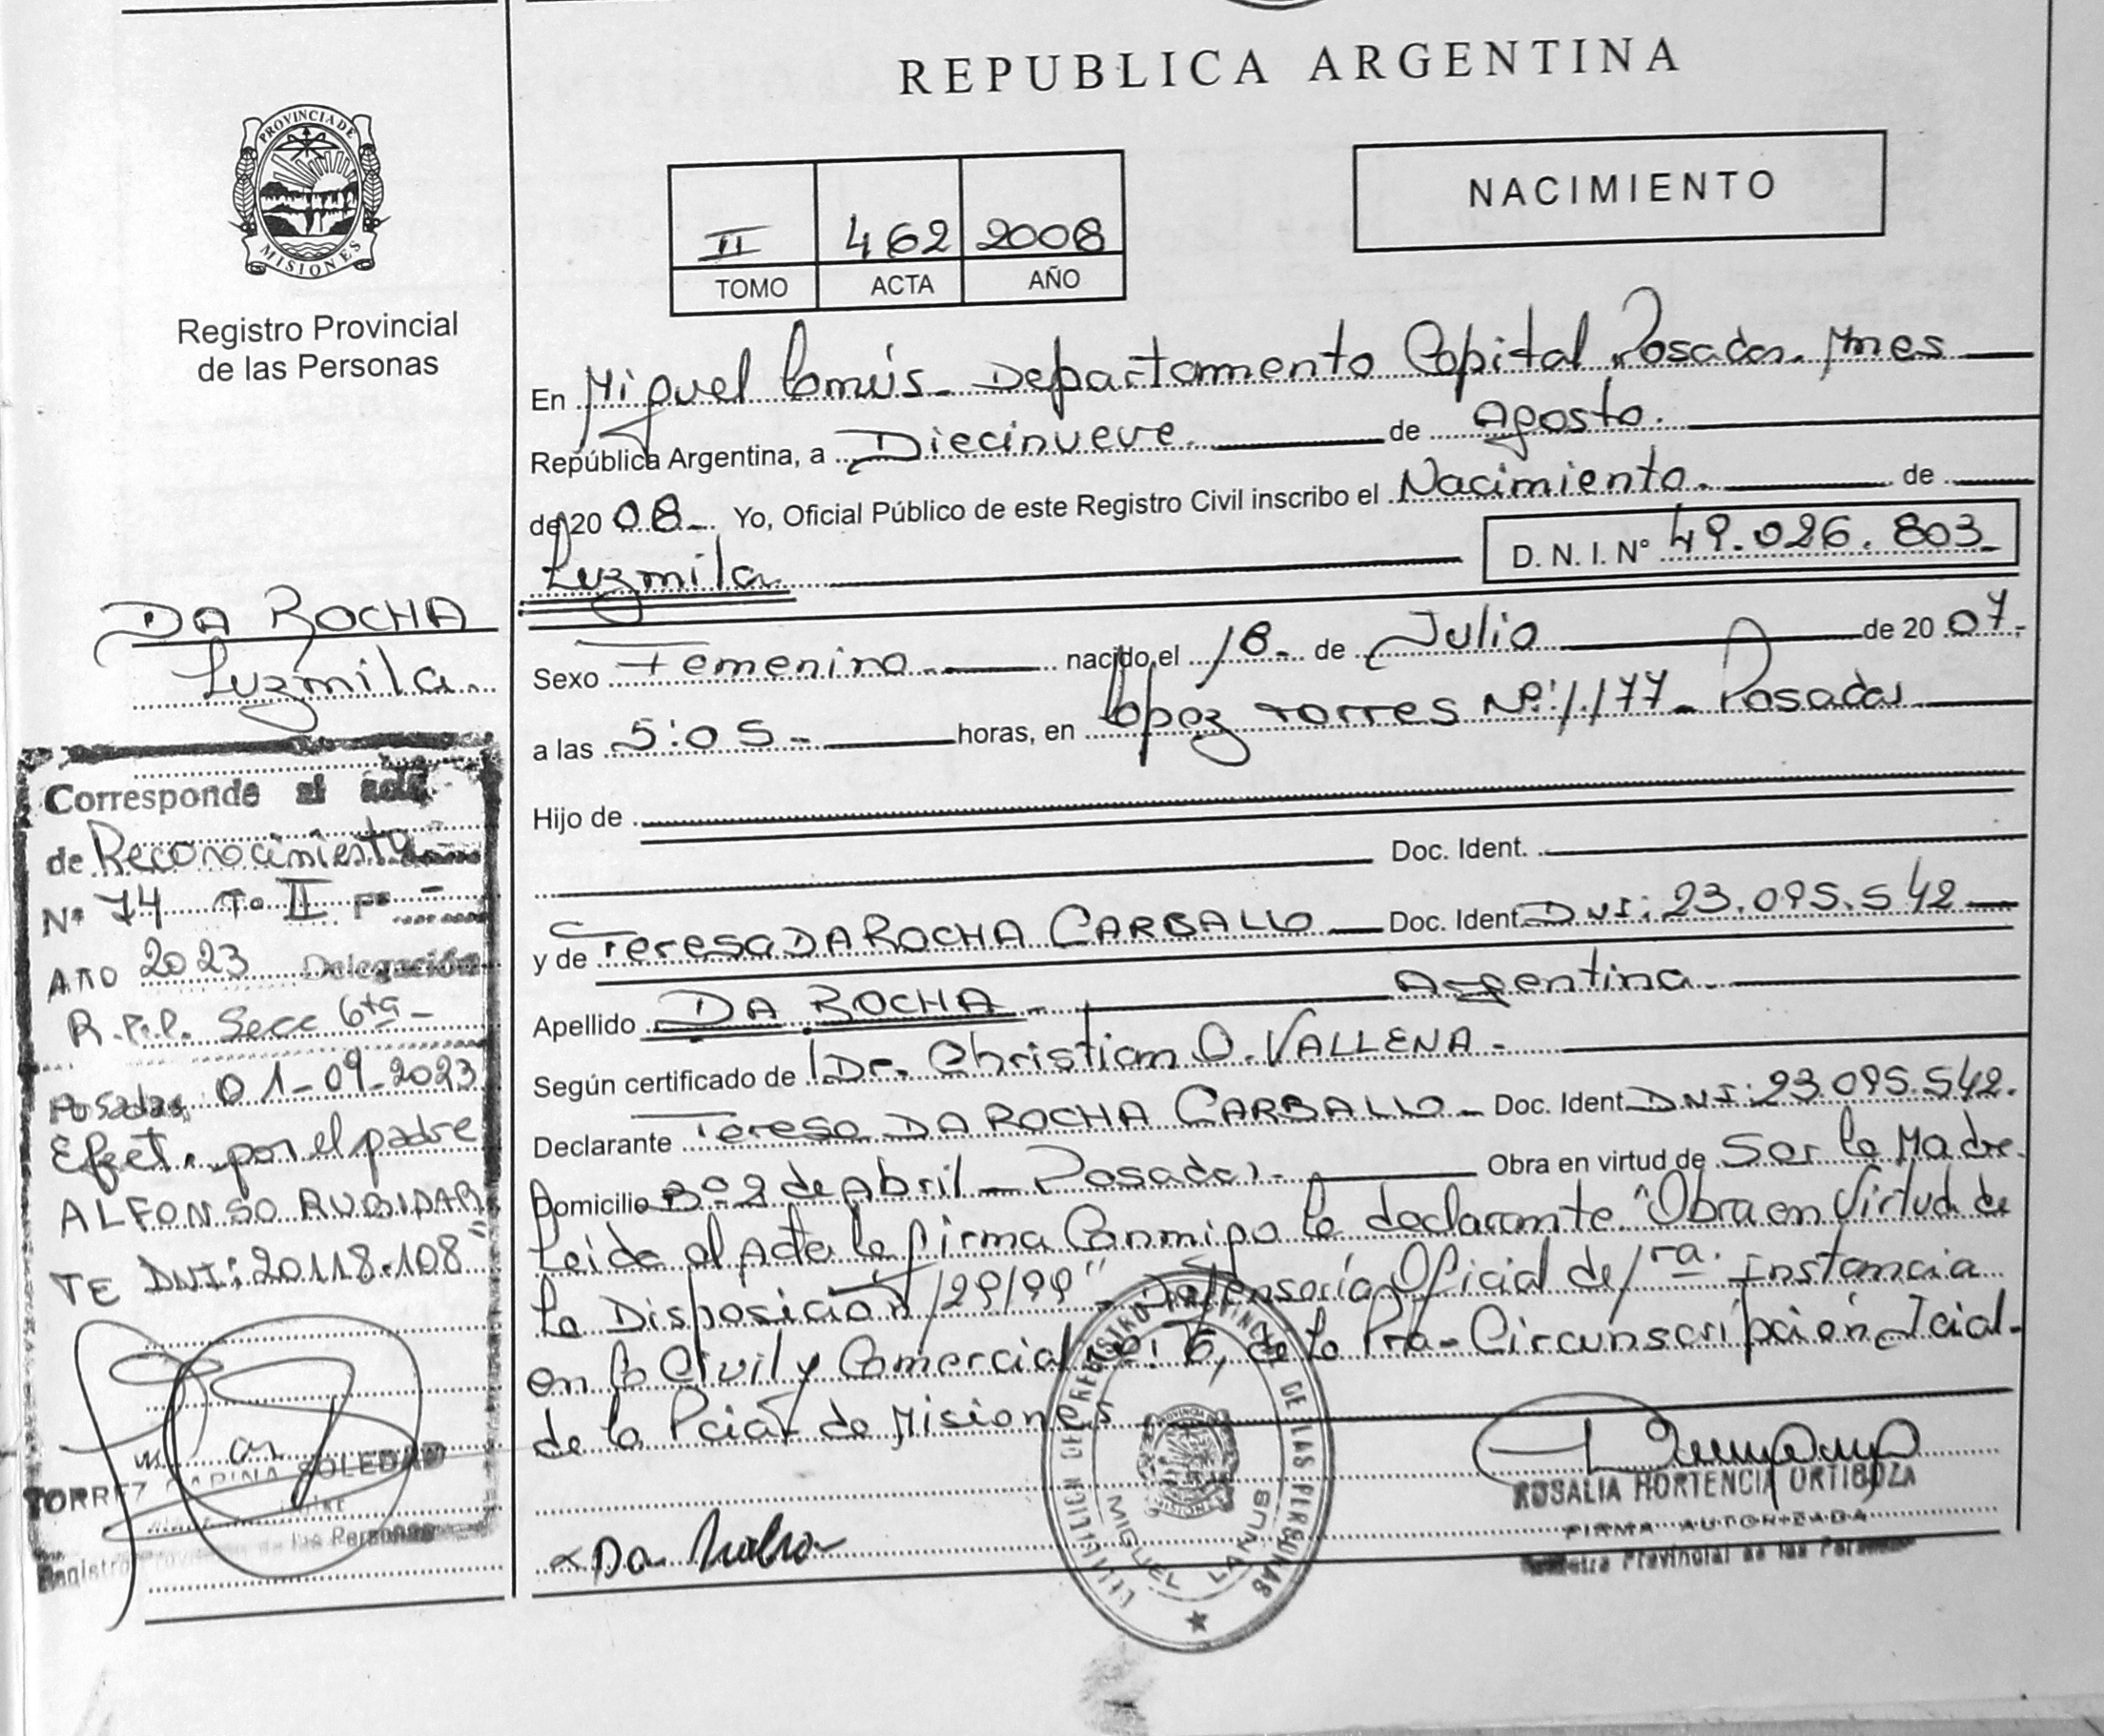 REPUBLICA ARGENTINA
PROVINCIA DE
MISIONES
Registro Provincial
de las Personas
II 462 2008
TOMO ACTA AÑO
NACIMIENTO
En Miguel Lanús - Departamento Capital Posadas. Mnes
República Argentina, a Diecinueve. de Agosto.
de 20 08 Yo, Oficial Público de este Registro Civil inscribo el Nacimiento. de
Luzmila D. N. I. Nº 49.026.803
Sexo Femenino nacido el 18 de Julio de 20 07.
a las 5:05 - horas, en Lopez Torres Nº: 1.177 - Posadas
Hijo de
Doc. Ident.
y de Teresa DA ROCHA CARBALLO Doc. Ident. DNI: 23.095.542
Apellido DA ROCHA - Argentina.
Según certificado de Dr. Christian O. VALLENA -
Declarante Teresa DA ROCHA CARBALLO - Doc. Ident. DNI: 23.095.542.
Domicilio Bº 2 de Abril - Posadas. Obra en virtud de Ser la Madre.
Leida al Acta la firma Conmigo la declarante. "Obra en Virtud de
la Disposición 129/99" - Defensoría Oficial de 1ra. Instancia
en lo Civil y Comercial Nº: 6, de la Pra - Circunscripción Jcial -
de la Pcia de Misiones
DA ROCHA
Luzmila
Corresponde al acta
de Reconocimiento
Nº 74 To II Fº -
AÑO 2023 Delegación
R.P.P. Secc 6ta -
Posadas, 01-09-2023
Efect. por el padre
ALFONSO RUBIDAR
TE DNI: 20.118.108
TORREZ CARINA SOLEDAD
Registro Provincial de las Personas
Da Rocha
REGISTRO PROVINCIAL DE LAS PERSONAS
PROVINCIA DE
MISIONES
MIGUEL LANUS
ROSALIA HORTENCIA ORTIGOZA
FIRMA AUTORIZADA
Registro Provincial de las Personas